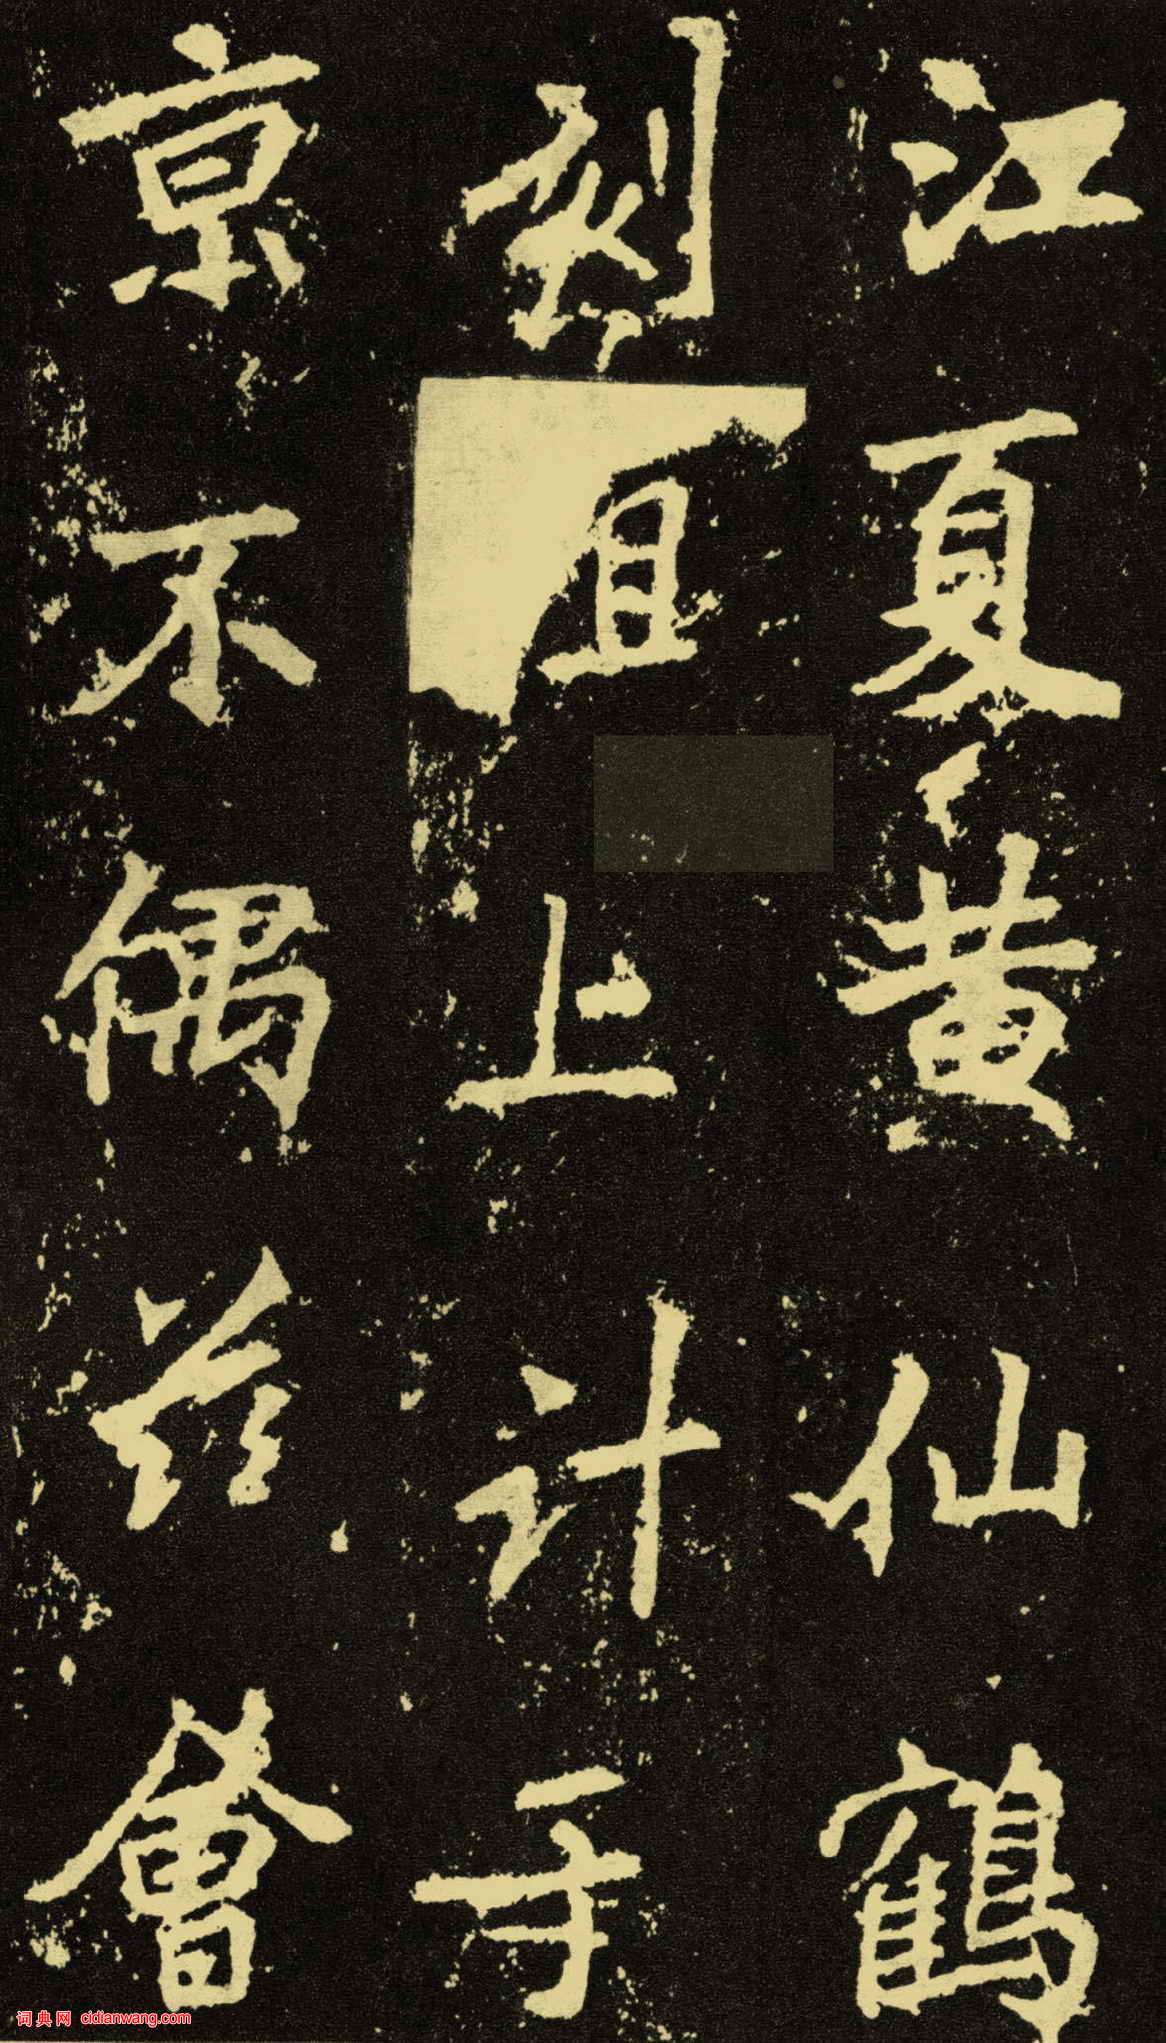 江夏黄仙鶴
刻且上計于
京不偶兹會
词典网 cidianwang.com